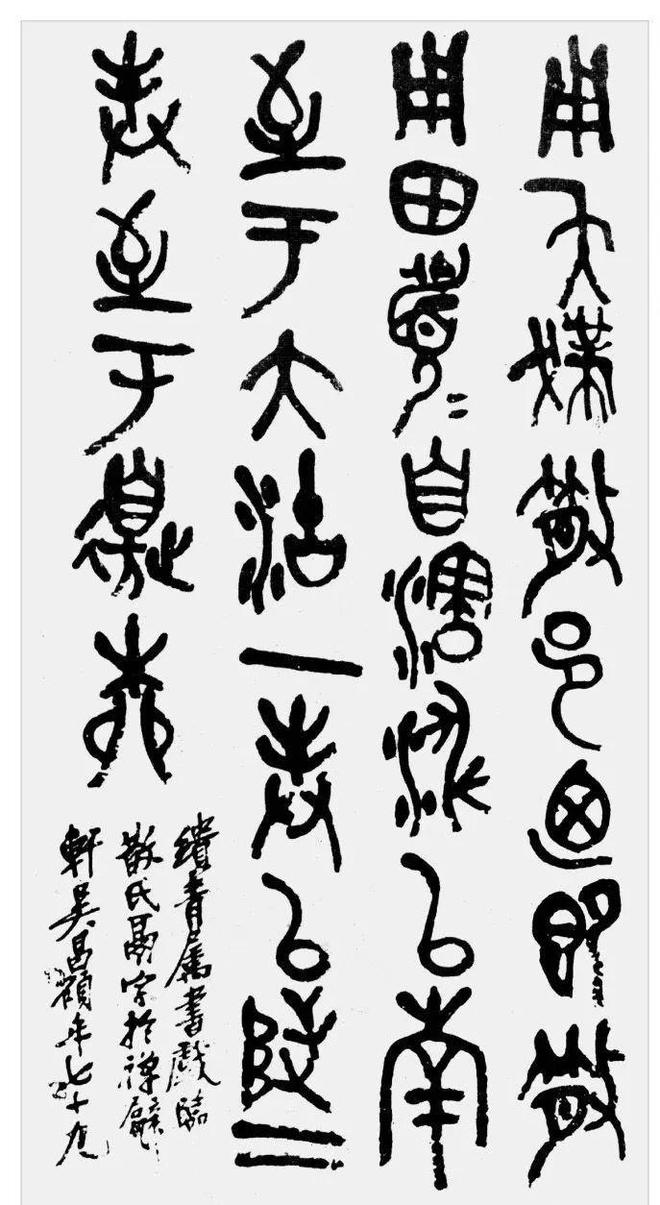 用夨撲散邑迺即散
用田眉自瀗涉以南
至于大沽一封以陟二
封至于邊柳
繢青屬書戲臨
散氏鬲字於禪甓
軒吳昌碩年七十九